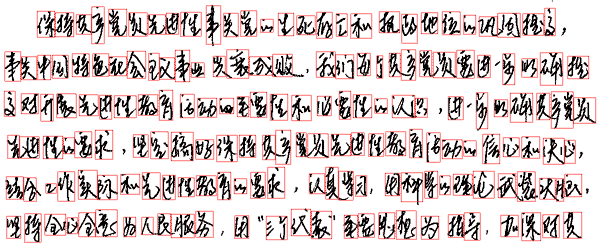 保持共产党员先进性事关党的生死存亡和执政地位的巩固提高，
事关中国特色社会主义事业兴衰成败。我们每个共产党员要进一步明确提
高对开展先进性教育活动的重要性和必要性的认识，进一步明确共产党员
先进性的要求，坚定搞好保持共产党员先进性教育活动的信心和决心，
结合工作实际和先进性教育的要求，认真学习，用科学的理论武装头脑，
坚持全心全意为人民服务，用“三个代表”重要思想为指导，加深对共